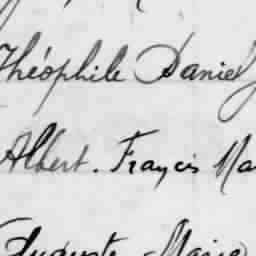 Théophile Daniel
Albert. Françis Ma
Auguste Marie